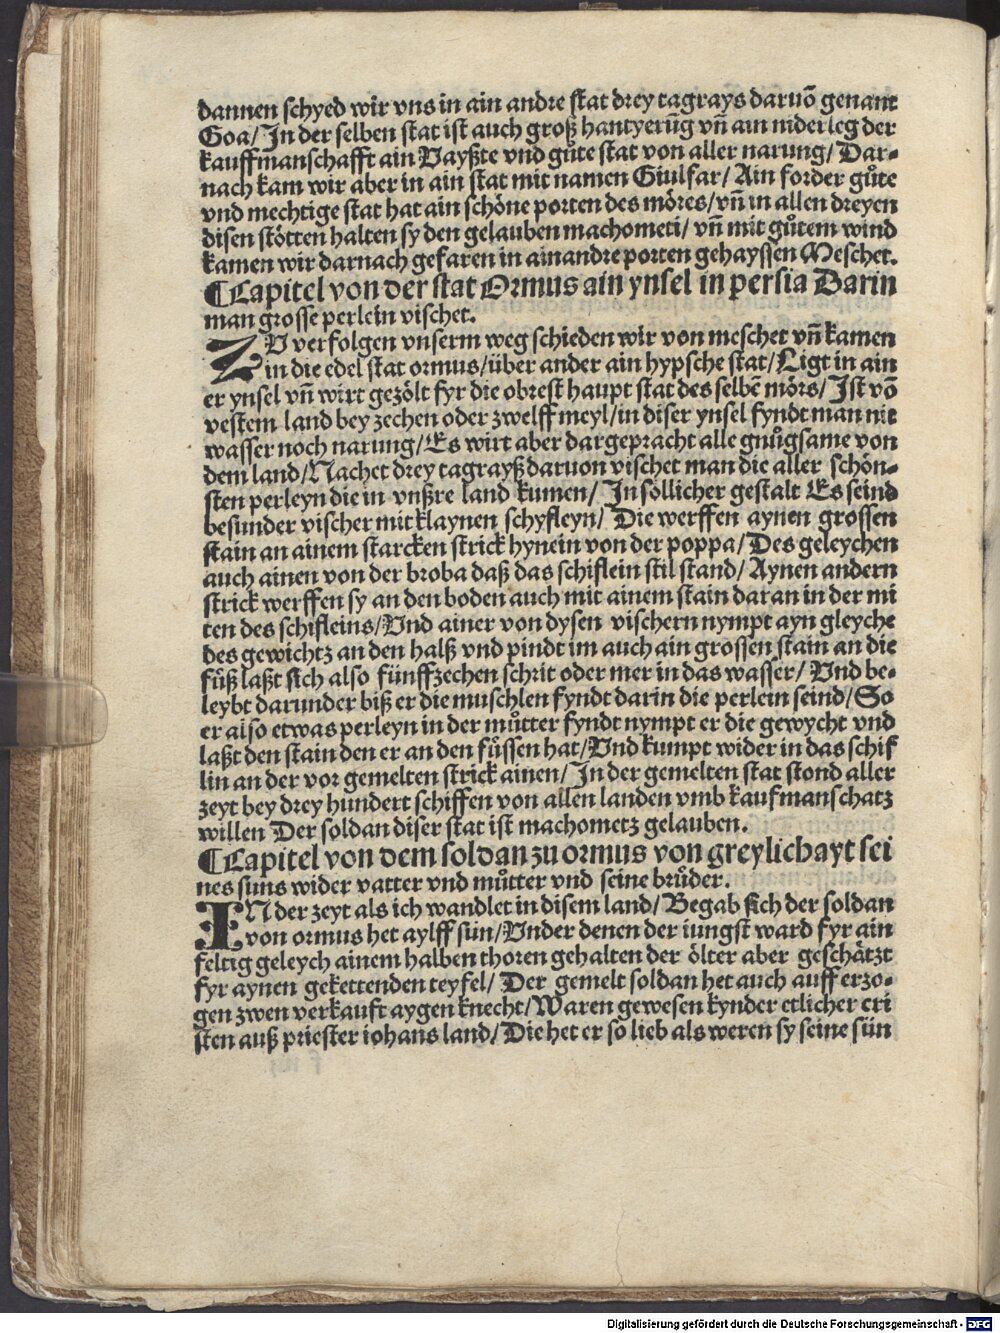 dannen schyed wir vns in ain andre stat drey tagrays daruõ genant
Goa/ In der selben stat ist auch groß hantyerũg vñ ain niderleg der
kauffmanschafft ain Vayßte vnd gůte stat von aller narung/ Dar-
nach kam wir aber in ain stat mit namen Giulfar/ Ain forder gůte
vnd mechtige stat hat ain schöne porten des möres/ vñ in allen dreyen
disen stötten halten sy den gelauben machometi/ vñ mit gůtem wind
kamen wir darnach gefaren in ainandre porten gehayssen Meschet.
¶Capitel von der stat Ormus ain ynsel in persia Darin
man grosse perlein vischet.
ZV verfolgen vnserm weg schieden wir von meschet vñ kamen
in die edel stat ormus/ über ander ain hypsche stat/ Ligt in ain
er ynsel vñ wirt gezölt fyr die obrest haupt stat des selbẽ mörs/ Ist võ
vestem land bey zechen oder zwelff meyl/ in diser ynsel fyndt man nit
wasser noch narung/ Es wirt aber dargepracht alle gnůgsame von
dem land/ Nachet drey tagrayß daruon vischet man die aller schön-
sten perleyn die in vnßre land kumen/ In söllicher gestalt Es seind
besunder vischer mit klaynen schyfleyn/ Die werffen aynen grossen
stain an ainem starcken strick hynein von der poppa/ Des geleychen
auch ainen von der broba daß das schiflein stil stand/ Aynen andern
strick werffen sy an den boden auch mit ainem stain daran in der mi
ten des schifleins/ Vnd ainer von dysen vischern nympt ayn gleyche
des gewichtz an den halß vnd pindt im auch ain grossen stain an die
füß laßt sich also fünffzechen schrit oder mer in das wasser/ Vnd be-
leybt darunder biß er die muschlen fyndt darin die perlein seind/ So
er also etwas perleyn in der můtter fyndt nympt er die gewycht vnd
laßt den stain den er an den füssen hat/ Vnd kumpt wider in das schif
lin an der vor gemelten strick ainen/ In der gemelten stat stond aller
zeyt bey drey hundert schiffen von allen landen vmb kaufmanschatz
willen Der soldan diser stat ist machometz gelauben.
¶Capitel von dem soldan zu ormus von greylichayt sei
nes suns wider vatter vnd můtter vnd seine brůder.
IN der zeyt als ich wandlet in disem land/ Begab sich der soldan
von ormus het aylff sün/ Vnder denen der iungst ward fyr ain
feltig geleych ainem halben thoren gehalten der ölter aber geschätzt
fyr aynen gekettenden teyfel/ Der gemelt soldan het auch auff erzo-
gen zwen verkauft aygen knecht/ Waren gewesen kynder etlicher cri
sten auß priester iohans land/ Die het er so lieb als weren sy seine sün
Digitalisierung gefördert durch die Deutsche Forschungsgemeinschaft - DFG